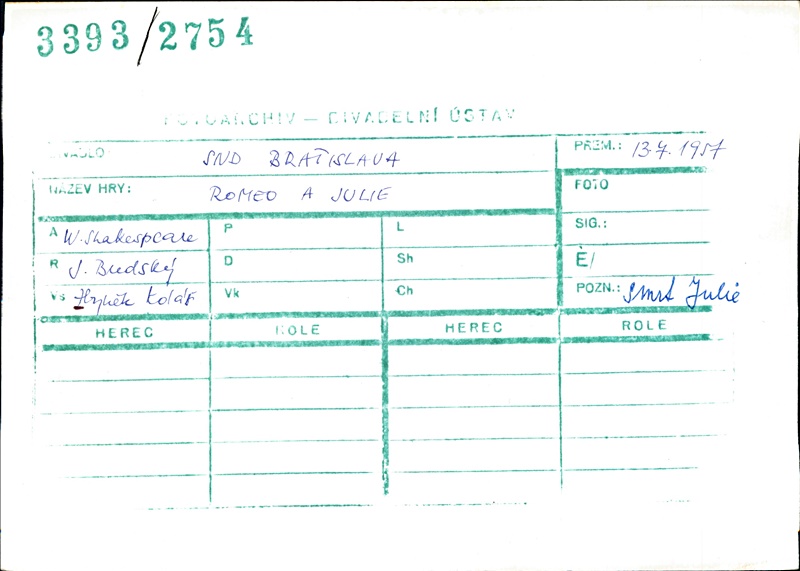 3393/2754
FOTOARCHIV — DIVADELNÍ ÚSTAV
DIVADLO SND BRATISLAVA
PREM.: 13.7.1957
NÁZEV HRY: ROMEO A JULIE
FOTO
A W. Shakespeare P L
SIG.:
R J. Budský D Sh
Č/
Vs Zbyněk Kolář Vk Ch
POZN.: Smrt Julie
HEREC ROLE HEREC ROLE